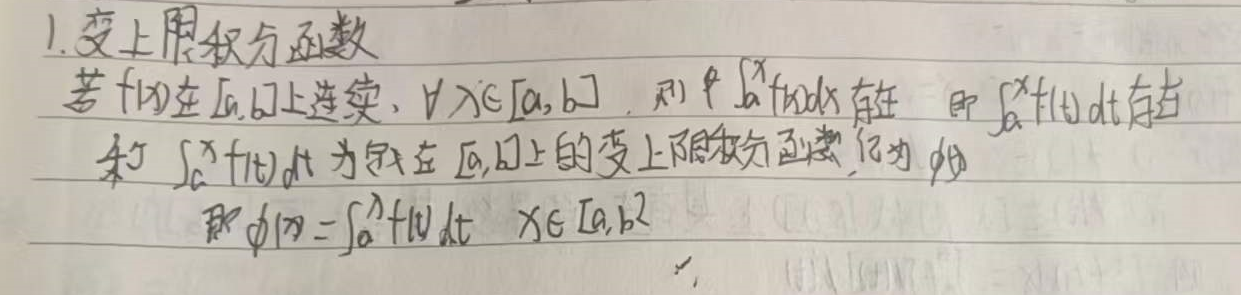 1.变上限积分函数
若 f(x)在[a,b]上连续,∀x∈[a,b],则 ∫ₐˣf(x)dx存在 即 ∫ₐˣf(t)dt存在
称 ∫ₐˣf(t)dt 为定义在[a,b]上的变上限积分函数,记为 φ(x)
即 φ(x)=∫ₐˣf(t)dt x∈[a,b]